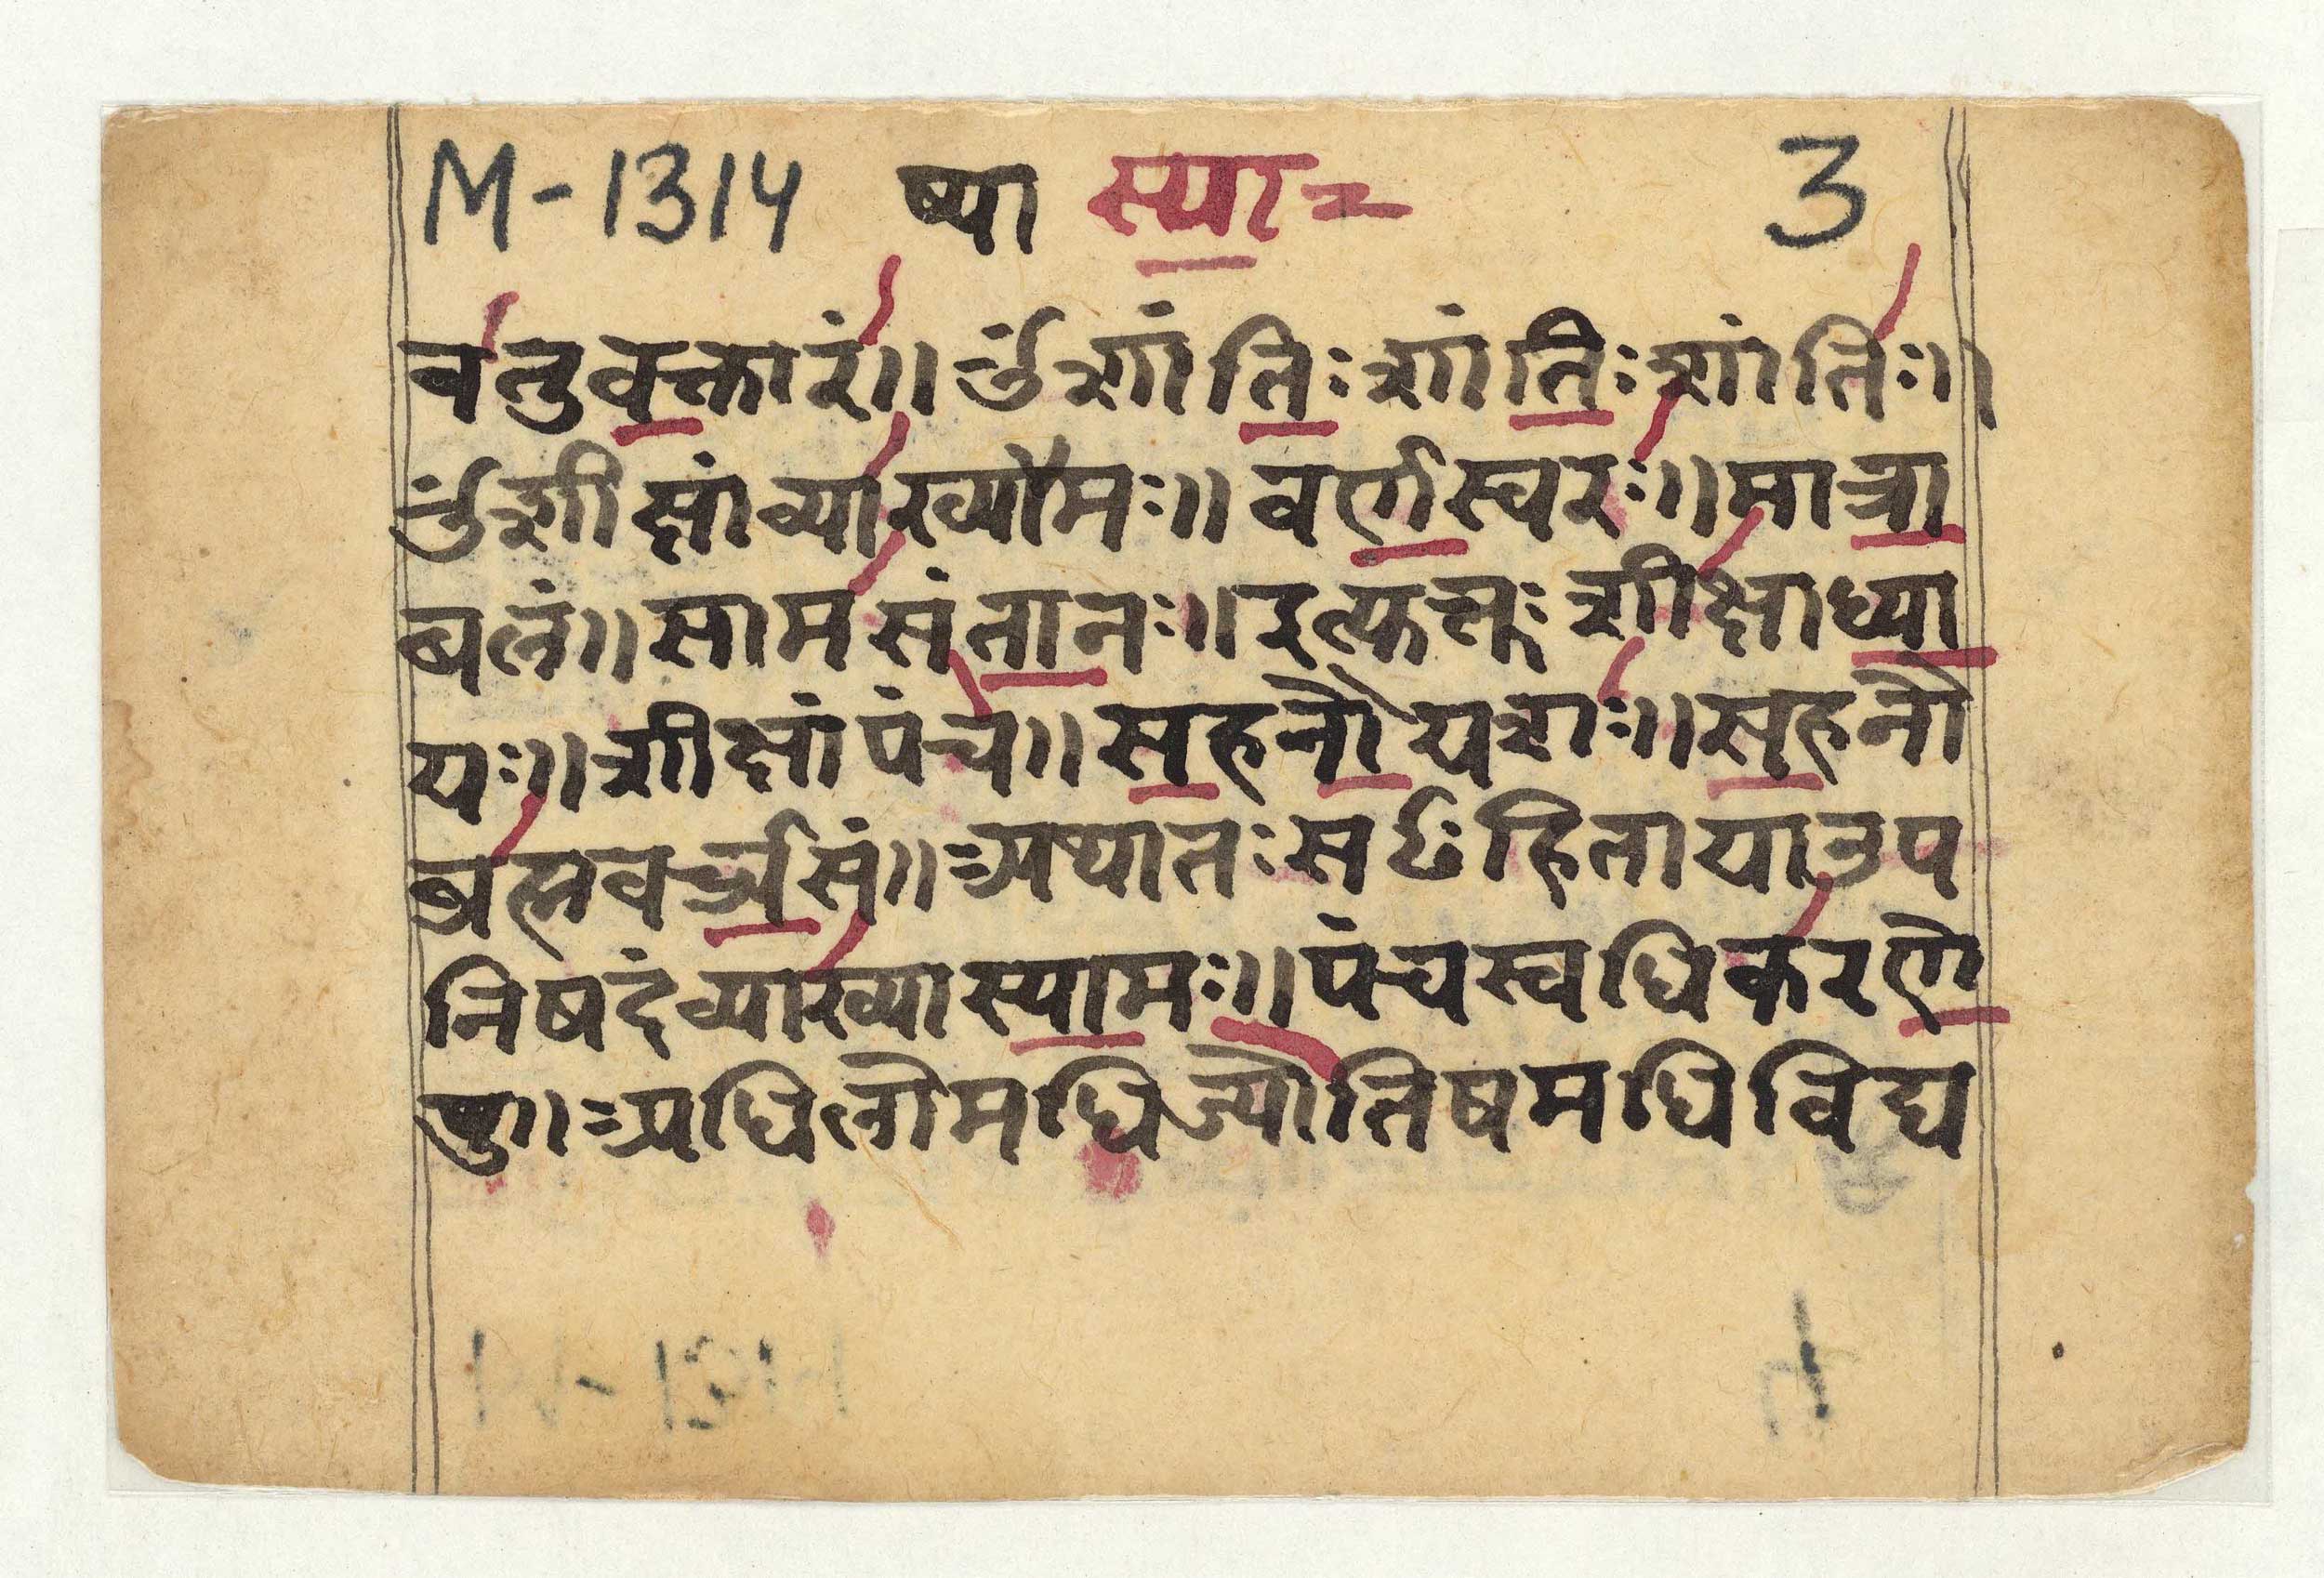 M-1314 ष्या स्या= 3
वतुवक्तारं॥ ॐशांतिःशांतिःशांतिः॥
ॐशीक्षांव्याख्यामः॥वर्णस्वरः॥मात्रा
बलं॥सामसंतानः॥इत्युक्तः शीक्षाध्या
यः॥शीक्षांपंच॥सहनौयशः॥सहनौ
ब्रह्मवर्च्चसं॥अथातःसꣳहितायाउप
निषदंव्याख्यास्यामः॥पंचस्वधिकरणे
षु॥अधिलोमधिज्यौतिषमधिविद्य